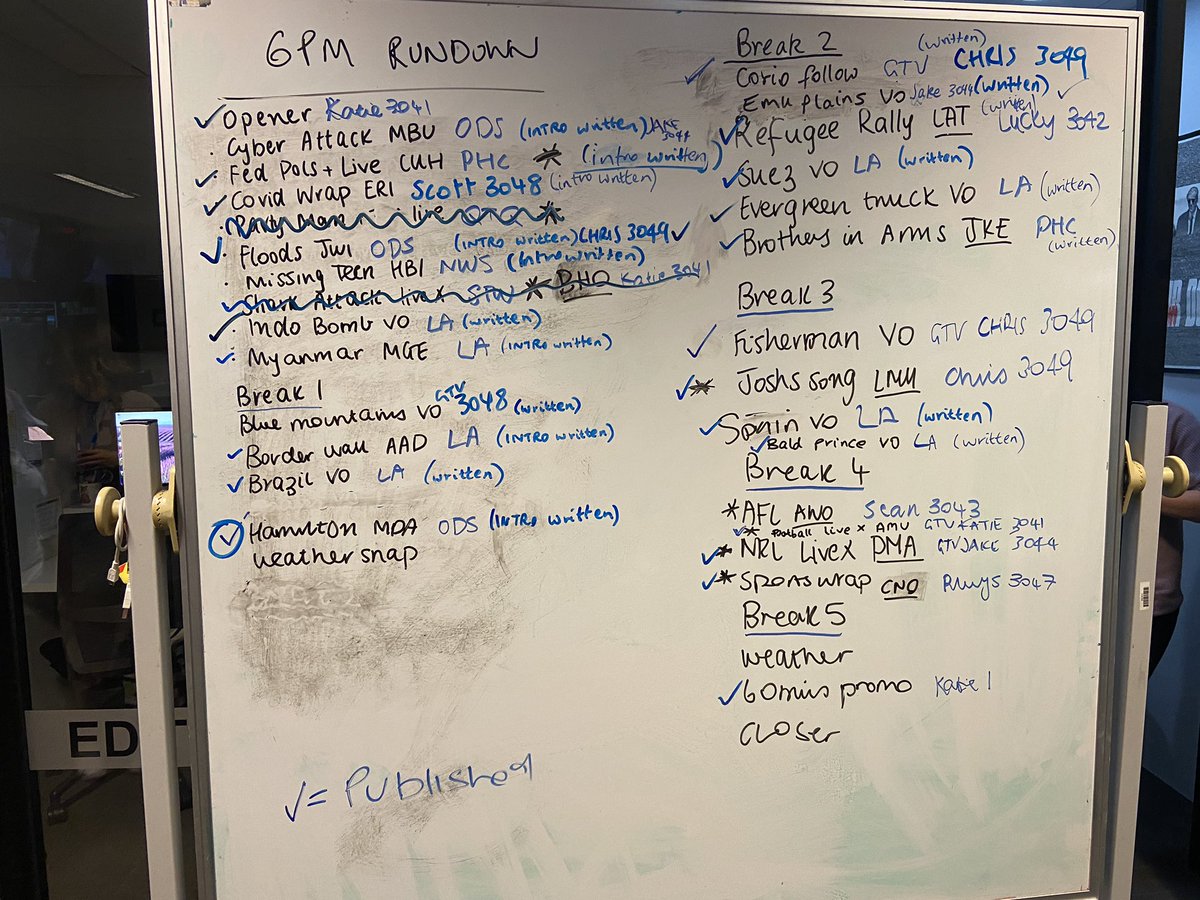 6PM RUNDOWN
✓ Opener Katie 3041
· Cyber Attack MBU ODS (INTRO written) JAKE 3044
✓ Fed Pols + Live CUH PHC * (intro written)
✓ Covid Wrap ERI Scott 3048 (intro written)
live *
✓ Floods JWI ODS (INTRO written) CHRIS 3049 ✓
· Missing Teen HBI NWS (Intro written)
✓ Shark Attack live X SFW * BHO Katie 3041
✓ Indo Bomb VO LA (written)
✓ Myanmar MGE LA (INTRO written)
Break 1
Blue mountains VO GTV 3048 (written)
✓ Border wall AAD LA (INTRO written)
✓ Brazil VO LA (written)
✓ Hamilton MDA ODS (INTRO written)
weather snap
✓ = Published
Break 2
✓ Corio follow GTV (written) CHRIS 3049
Emu plains VO Jake 3044 (written) ✓
✓ Refugee Rally LAT (written) Lucky 3042
✓ Suez VO LA (written)
✓ Evergreen truck VO LA (written)
✓ Brothers in Arms JKE PHC (written)
Break 3
✓ Fisherman VO GTV CHRIS 3049
✓* Joshs song LMM Chris 3049
✓ Spain VO LA (written)
✓ Bald Prince VO LA (written)
Break 4
* AFL AWO Sean 3043
✓* football live x AMU GTV KATIE 3041
✓* NRL Live X DMA GTV JAKE 3044
✓* Sports wrap CNO Rhys 3047
Break 5
weather
✓ 60 mins promo Katie 1
Closer
ED